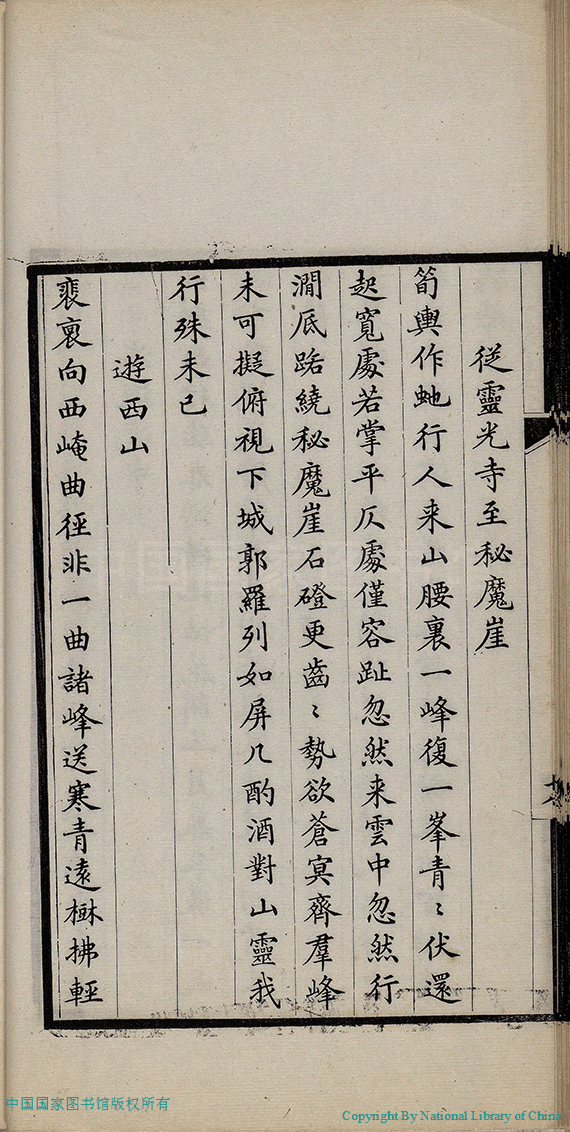 從靈光寺至秘魔崖
筍輿作虵行人来山腰裏一峰復一峯青〻伏還
起寛處若掌平仄處僅容趾忽然来雲中忽然行
澗底路繞秘魔崖石磴更齒〻勢欲蒼冥齊羣峰
未可擬俯視下城郭羅列如屏几酌酒對山靈我
行殊未已
遊西山
裴裏向西崦曲徑非一曲諸峰送寒青遠樹拂輕
中国国家图书馆版权所有
Copyright By National Library of China